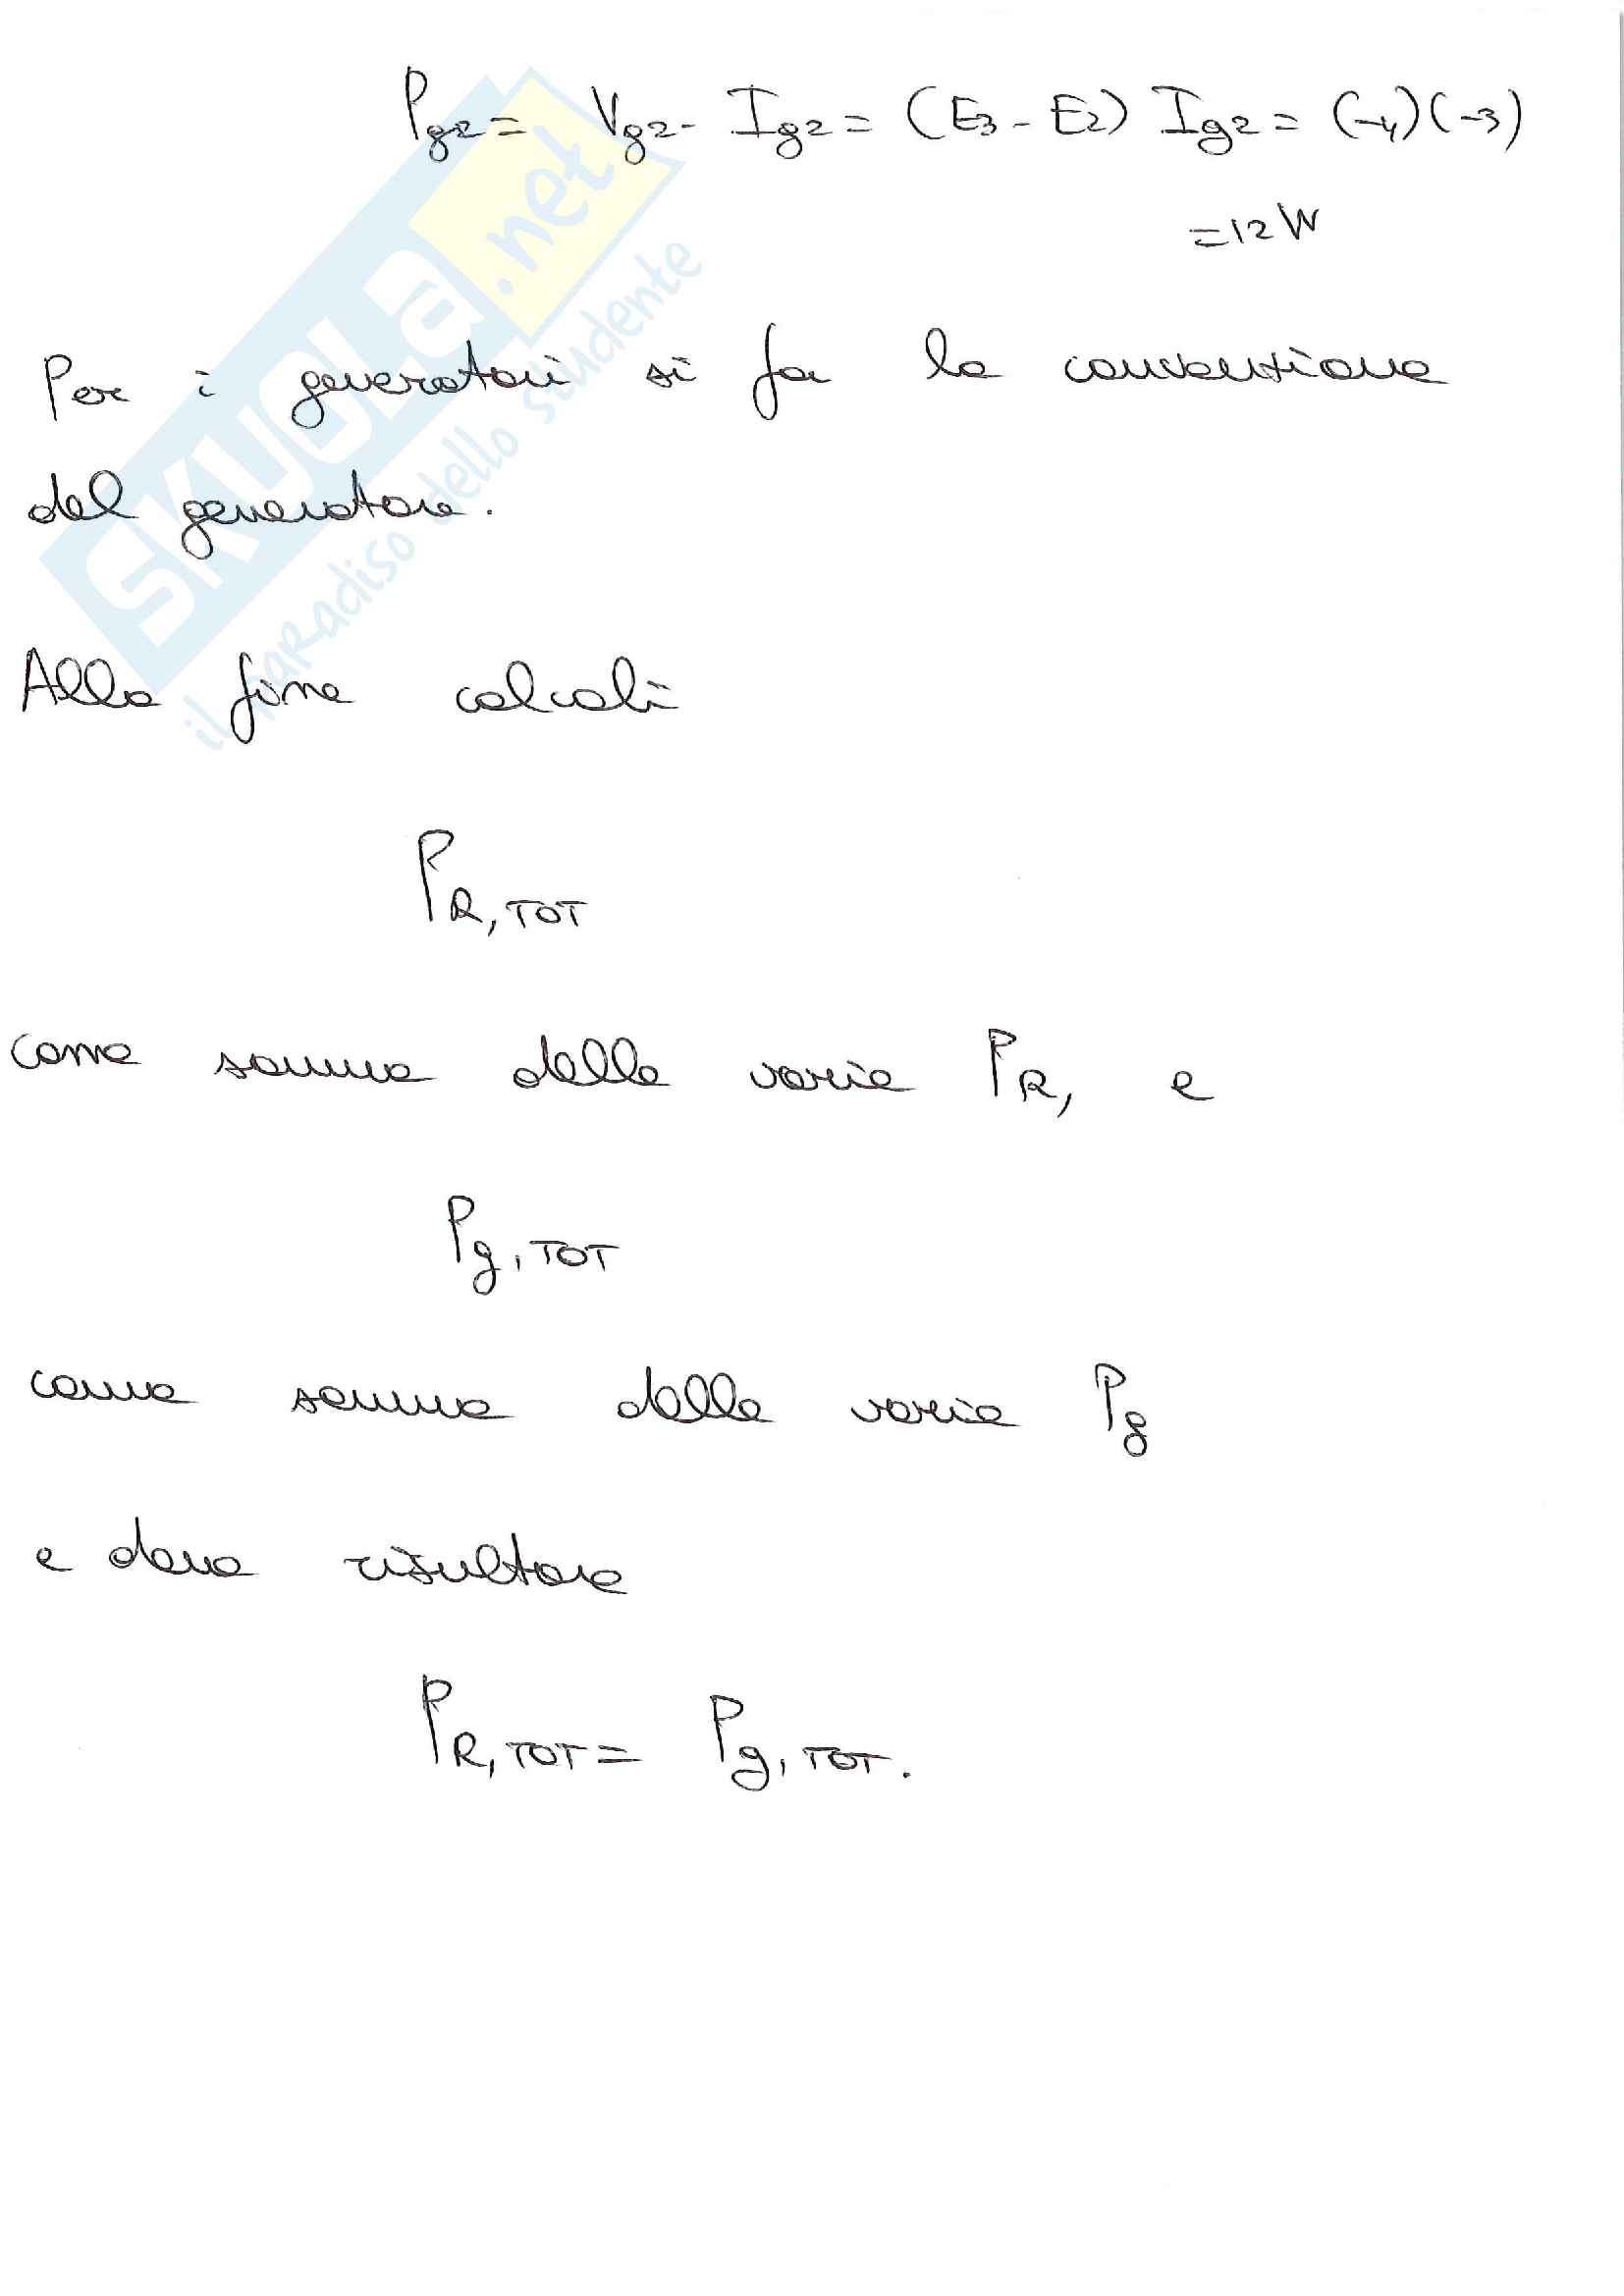 Pg2 = Vg2 - Ig2 = (E3 - E2) Ig2 = (-4)(-3)
= 12 W
Per i generatori si fa la convenzione
del generatore.
Alla fine calcoli
PR, TOT
come somma delle varie PR, e
Pg, TOT
come somma delle varie Pg
e deve risultare
PR, TOT = Pg, TOT.
SKUOLA.net
il paradiso dello studente